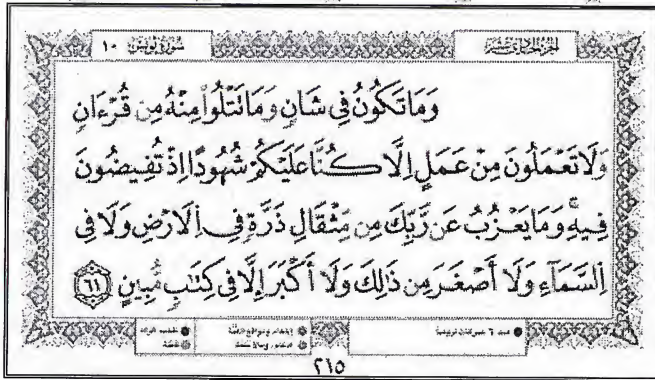 الجزء الحادي عشر
سورة يونس ١٠
وَمَا تَكُونُ فِي شَانٍ وَمَا نَتْلُواْ مِنْهُ مِن قُرْءَانٍ
وَلَا تَعْمَلُونَ مِنْ عَمَلٍ اِلَّا كُنَّا عَلَيْكُمْ شُهُودًا اِذْ تُفِيضُونَ
فِيهِ وَمَا يَعْزُبُ عَن رَّبِّكَ مِن مِّثْقَالِ ذَرَّةٍ فِي اِلَارْضِ وَلَا فِي
اِلسَّمَآءِ وَلَا أَصْغَرَ مِن ذَالِكَ وَلَا أَكْبَرَ إِلَّا فِي كِتَابٍ مُّبِينٍ ٦١
٢١٥